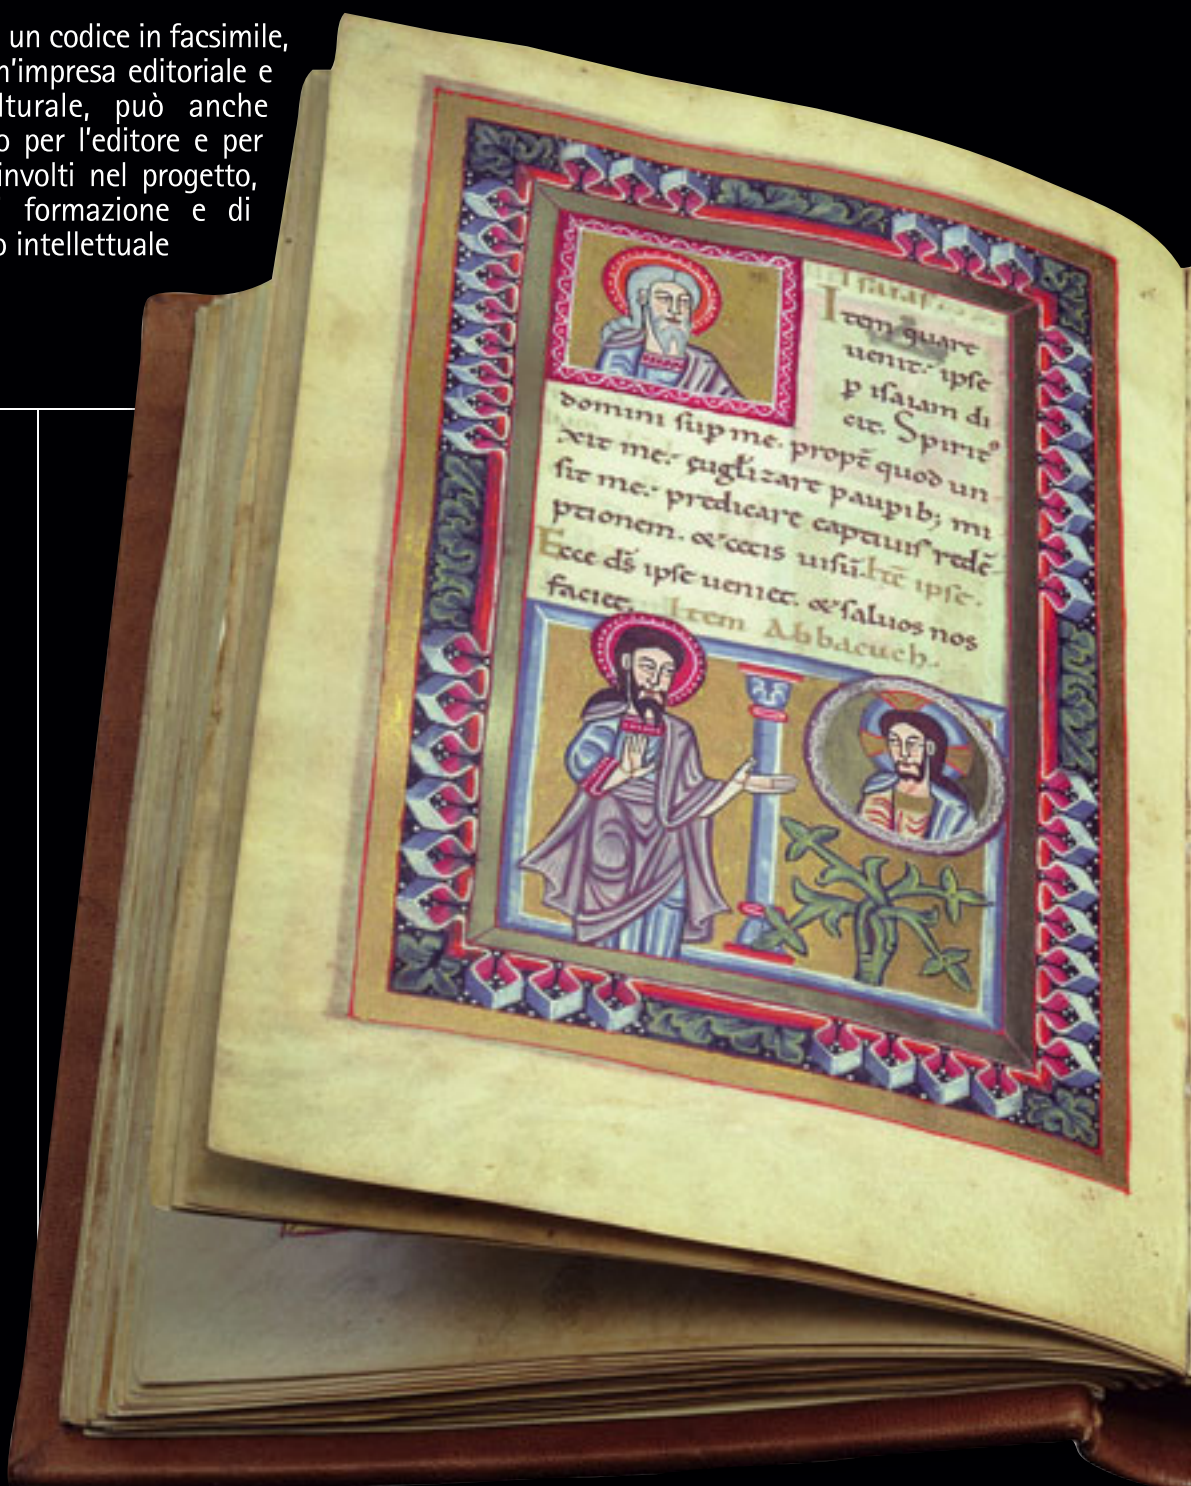 un codice in facsimile,
n'impresa editoriale e
lturale, può anche
o per l'editore e per
involti nel progetto,
formazione e di
o intellettuale
Isaias.
Item quare
uenit. ipse
p isaiam di
cit. Spirit⁹
domini sup me. propt̄ quod un
xit me. euglizare paupib; mi
sit me. predicare captiuis redē
ptionem. & cecis uisū. Itē ipse.
Ecce dn̄s ipse ueniet. & saluos nos
faciet. Item Abbacuch.